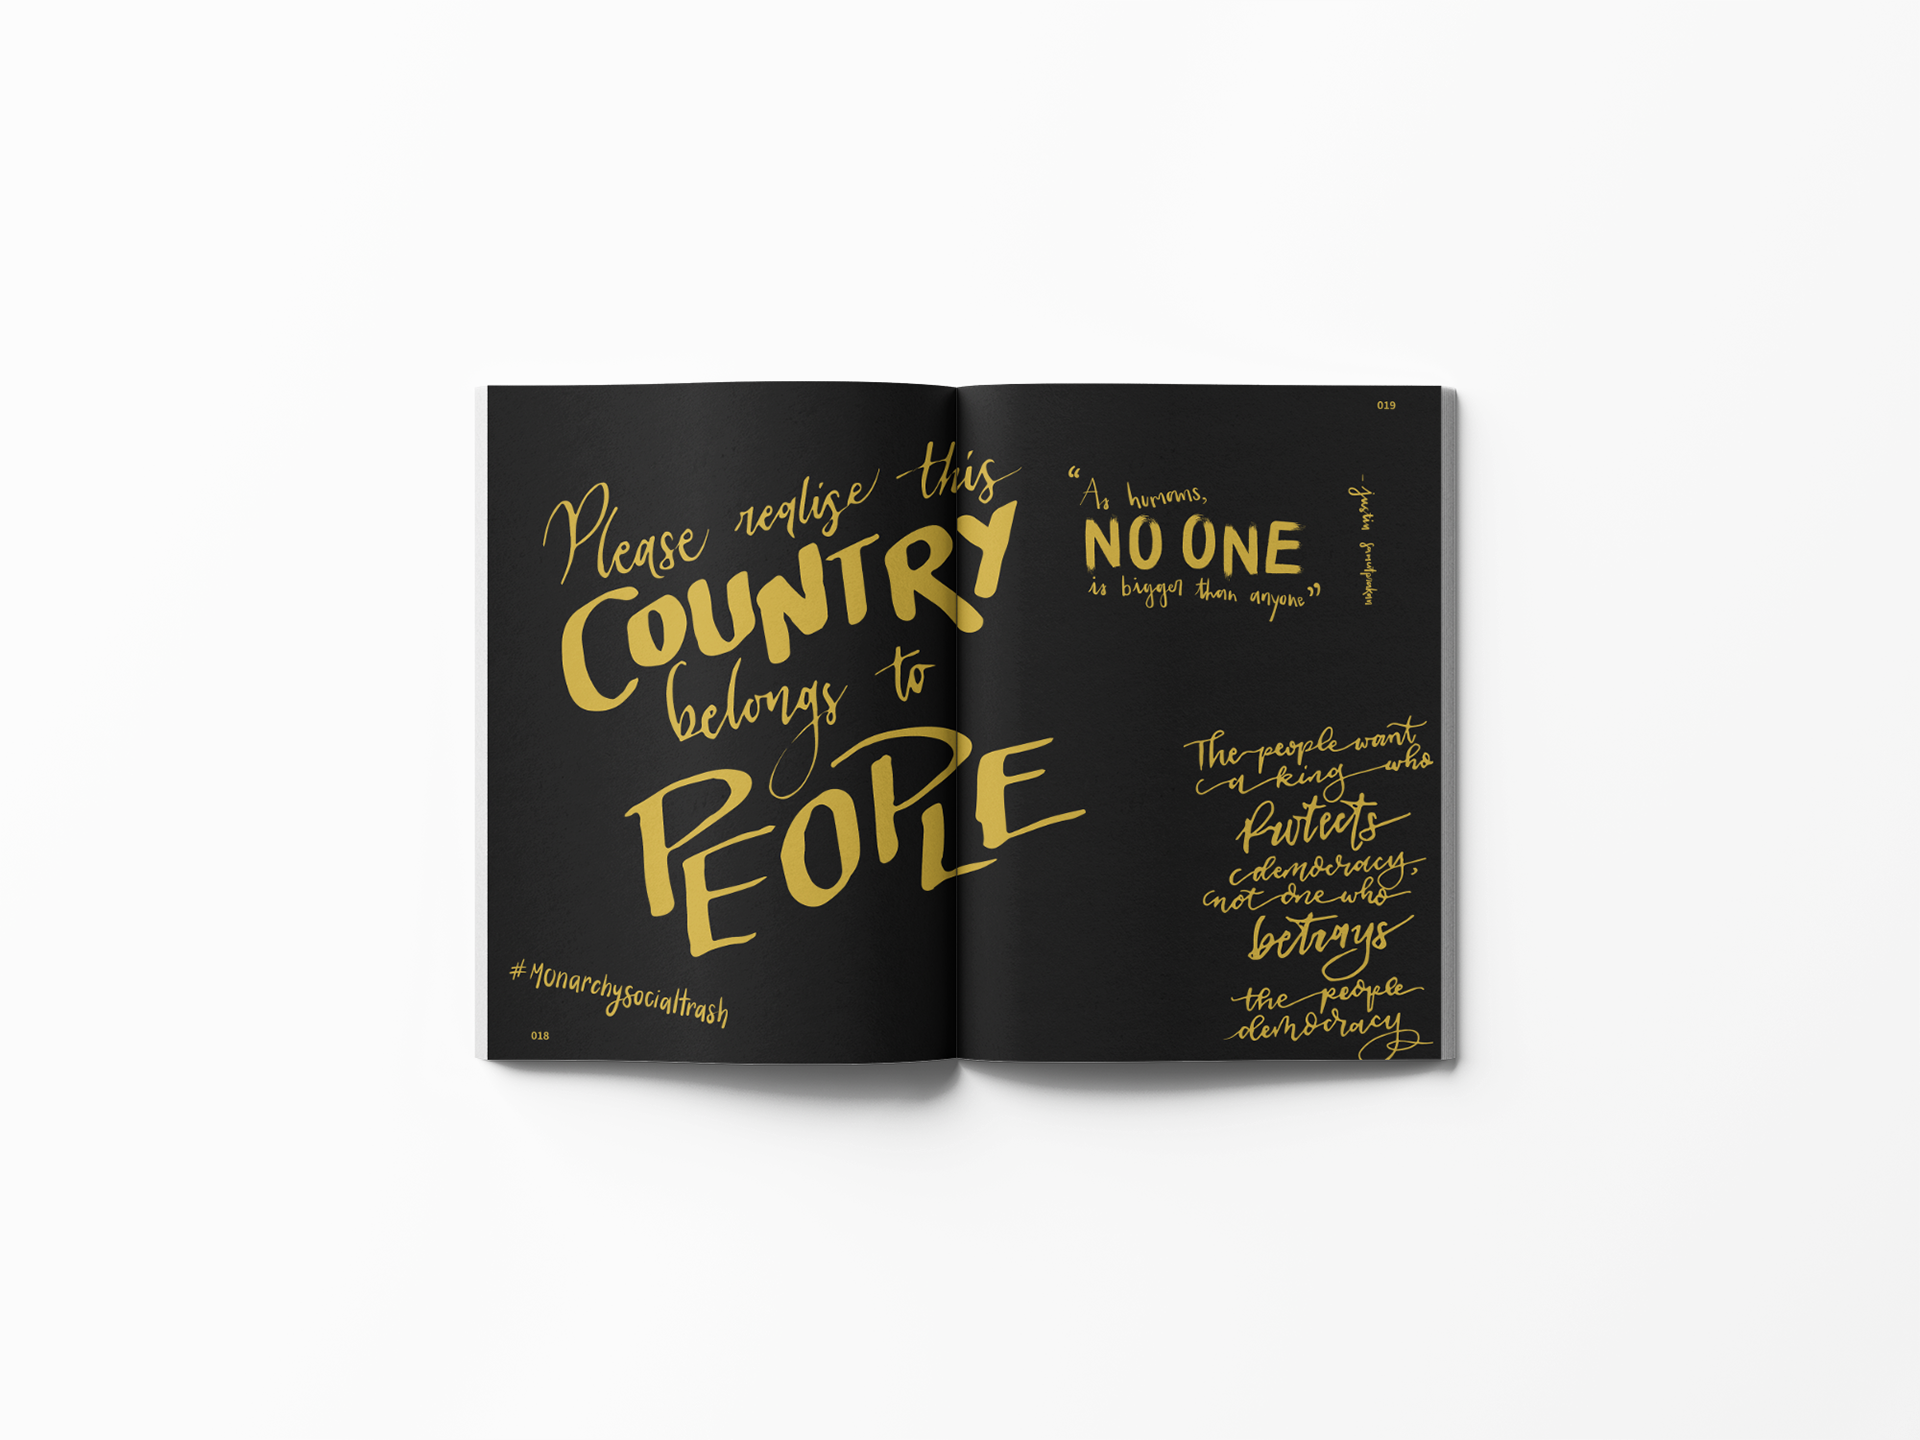 Please realise this
COUNTRY
belongs to
PEOPLE
#Monarchysocialtrash
018
019
“As humans,
NO ONE
is bigger than anyone”
- Justin
The people want
a king who
Protects
democracy,
not one who
betrays
the people
democracy